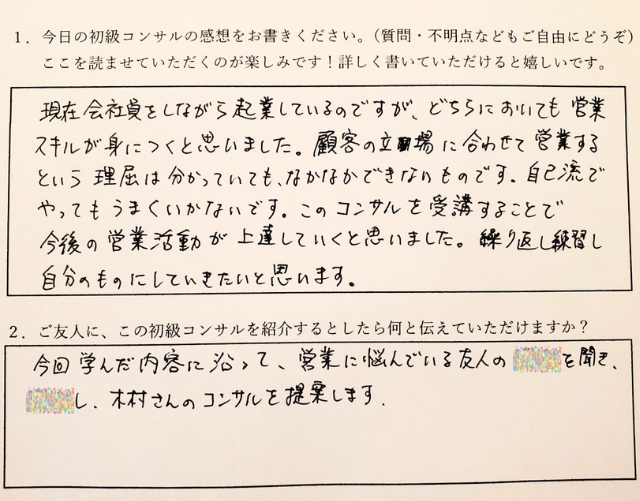 1．今日の初級コンサルの感想をお書きください。（質問・不明点などもご自由にどうぞ）
ここを読ませていただくのが楽しみです！詳しく書いていただけると嬉しいです。
現在会社員をしながら起業しているのですが、どちらにおいても営業
スキルが身につくと思いました。顧客の立場に合わせて営業する
という理屈は分かっていても、なかなかできないものです。自己流で
やってもうまくいかないです。このコンサルを受講することで
今後の営業活動が上達していくと思いました。繰り返し練習し
自分のものにしていきたいと思います。
2．ご友人に、この初級コンサルを紹介するとしたら何と伝えていただけますか？
今回学んだ内容に沿って、営業に悩んでいる友人の を聞き、
し、木村さんのコンサルを提案します.